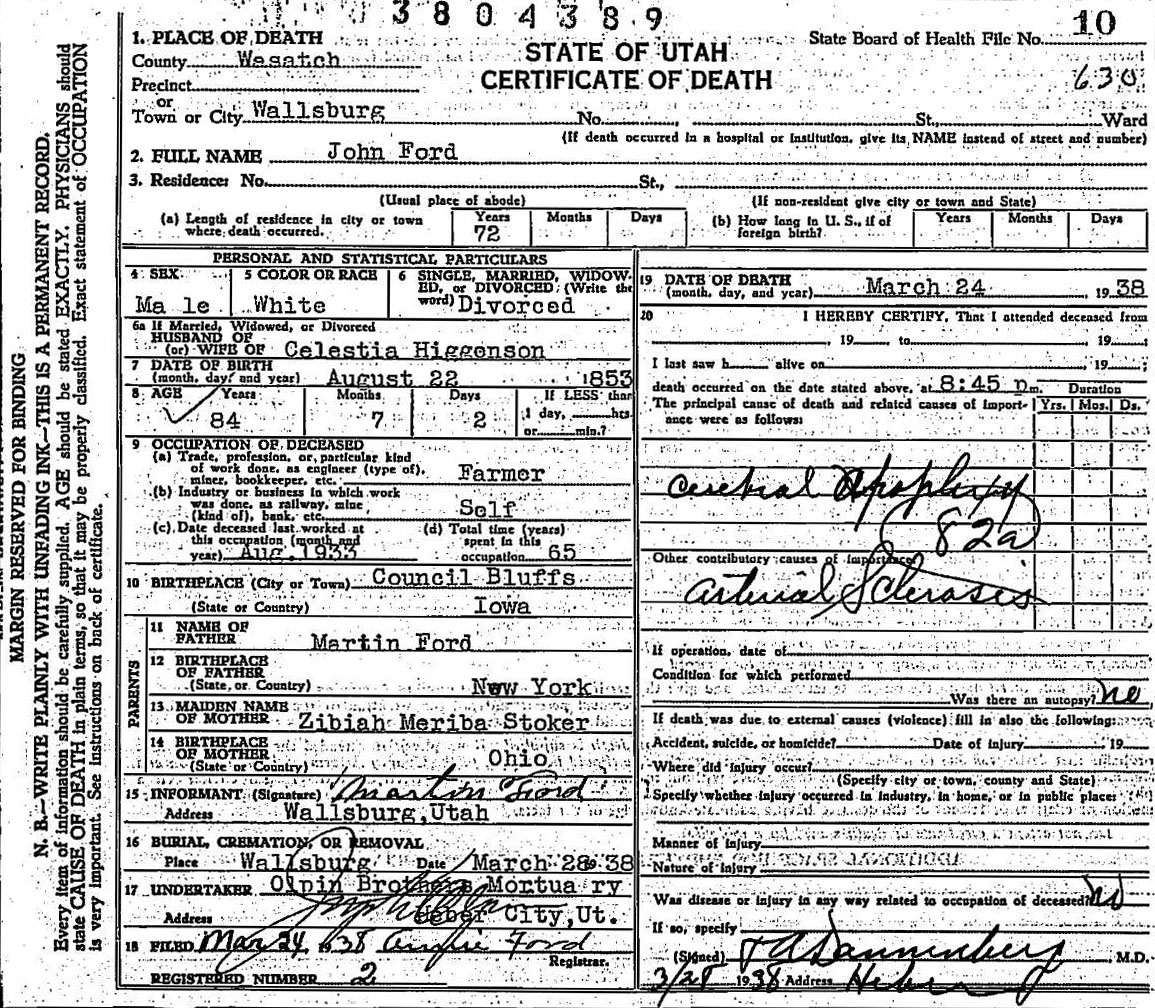 3 8 0 4 3 8 9
10
State Board of Health File No.
630
STATE OF UTAH
CERTIFICATE OF DEATH
1. PLACE OF DEATH
County Wasatch
Precinct
or
Town or City Wallsburg No. St., Ward
(If death occurred in a hospital or institution, give its NAME instead of street and number)
2. FULL NAME John Ford
3. Residence: No. St.,
(Usual place of abode) (If non-resident give city or town and State)
(a) Length of residence in city or town where death occurred. Years 72 Months Days
(b) How long in U. S., if of foreign birth? Years Months Days
PERSONAL AND STATISTICAL PARTICULARS
4 SEX Ma le
5 COLOR OR RACE White
6 SINGLE, MARRIED, WIDOW-
ED, or DIVORCED (Write the
word) Divorced
6a If Married, Widowed, or Divorced
HUSBAND OF
(or) WIFE OF Celestia Higgenson
7 DATE OF BIRTH
(month, day, and year) August 22 1853
8 AGE Years 84 Months 7 Days 2
If LESS than
1 day, hrs.
or min.?
9 OCCUPATION OF DECEASED
(a) Trade, profession, or particular kind
of work done, as engineer (type of),
miner, bookkeeper, etc. Farmer
(b) Industry or business in which work
was done, as railway, mine
(kind of), bank, etc. Self
(c) Date deceased last worked at
this occupation (month and
year) Aug. 1933
(d) Total time (years)
spent in this
occupation 65
10 BIRTHPLACE (City or Town) Council Bluffs
(State or Country) Iowa
PARENTS
11 NAME OF
FATHER Martin Ford
12 BIRTHPLACE
OF FATHER
(State, or Country) New York
13 MAIDEN NAME
OF MOTHER Zibiah Meriba Stoker
14 BIRTHPLACE
OF MOTHER
(State or Country) Ohio
15 INFORMANT (Signature) Marton Ford
Address Wallsburg, Utah
16 BURIAL, CREMATION, OR REMOVAL
Place Wallsburg Date March 28 38
17 UNDERTAKER Olpin Brothers Mortua ry
Address Heber City, Ut.
18 FILED Mar 24, 1938 Ford
Registrar.
REGISTERED NUMBER 2
19 DATE OF DEATH
(month, day, and year) March 24, 1938
20 I HEREBY CERTIFY, That I attended deceased from
, 19 to 19 ;
I last saw h alive on 19 ;
death occurred on the date stated above, at 8:45 p m. Duration
The principal cause of death and related causes of import-
ance were as follows: Yrs. Mos. Ds.
Cerebral Apoplexy
82a
Other contributory causes of importance
Arterial Sclerosis
If operation, date of
Condition for which performed
Was there an autopsy? no
If death was due to external causes (violence) fill in also the following:
Accident, suicide, or homicide? Date of injury 19
Where did injury occur?
(Specify city or town, county and State)
Specify whether injury occurred in industry, in home, or in public place:
Manner of injury
Nature of injury
Was disease or injury in any way related to occupation of deceased? No
If so, specify
(Signed) Dannenberg, M.D.
3/28 1938 Address Heber
MARGIN RESERVED FOR BINDING
N. B.—WRITE PLAINLY WITH UNFADING INK—THIS IS A PERMANENT RECORD.
Every item of information should be carefully supplied. AGE should be stated EXACTLY. PHYSICIANS should
state CAUSE OF DEATH in plain terms, so that it may be properly classified. Exact statement of OCCUPATION
is very important. See instructions on back of certificate.